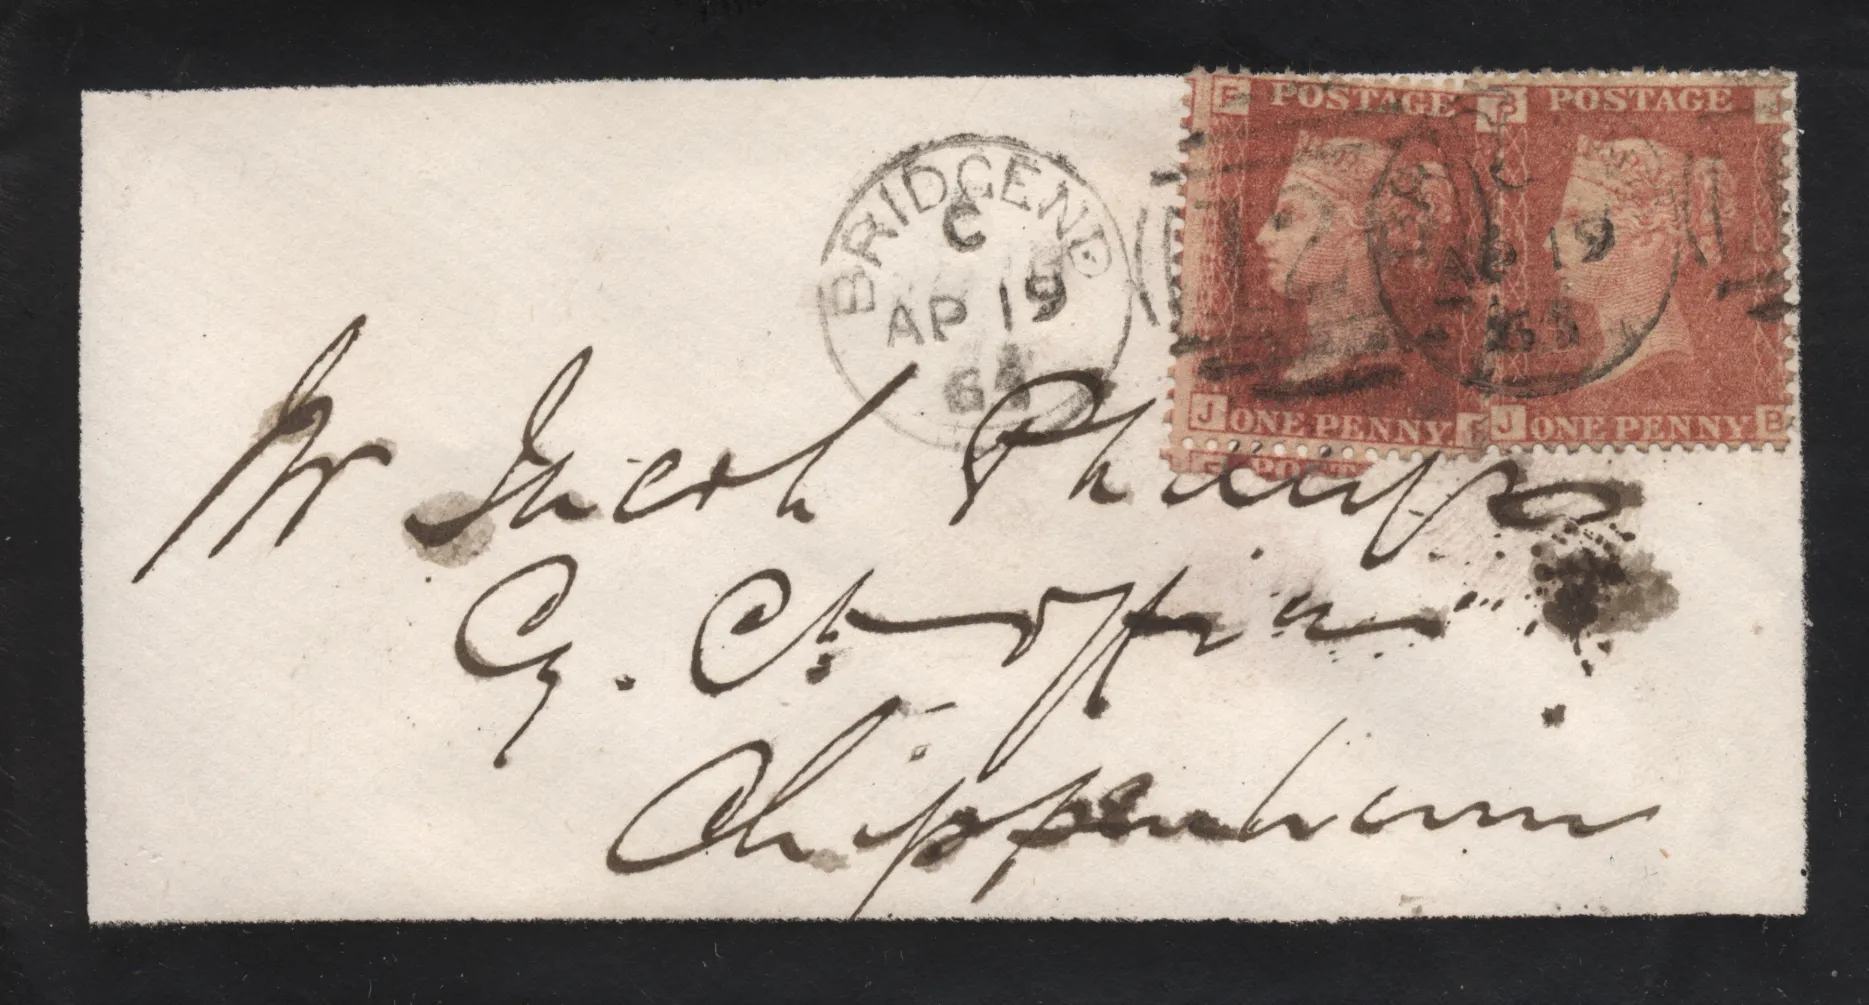 BRIDGEND
C
AP 19
64
F POSTAGE
J ONE PENNY F
B POSTAGE J
J ONE PENNY B
C
AP 19
POST
Mr Jacob Phillips
Chippenham